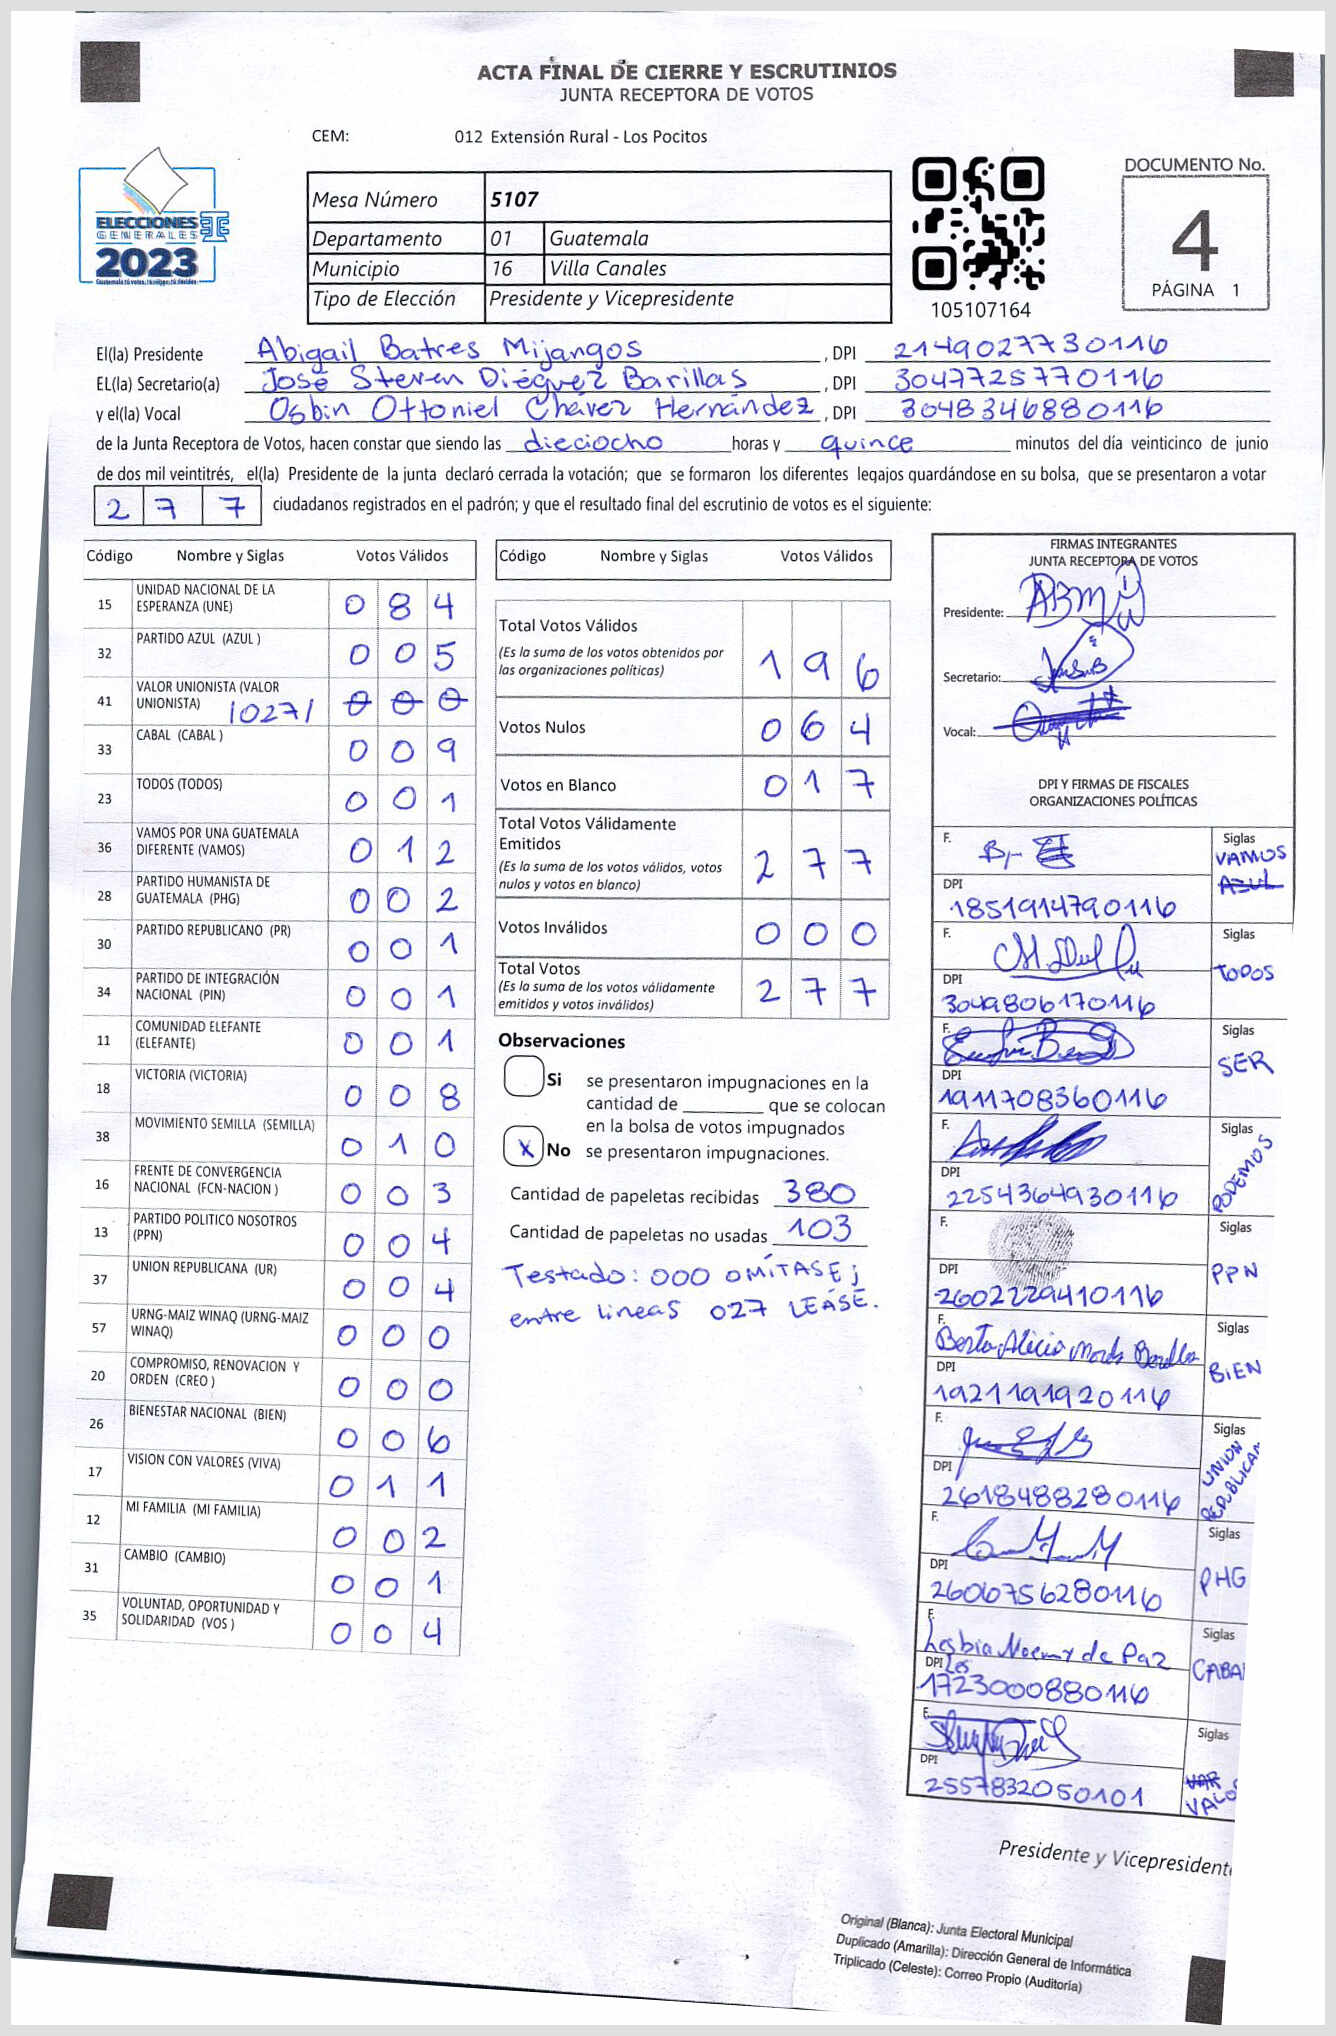 ACTA FINAL DE CIERRE Y ESCRUTINIOS
JUNTA RECEPTORA DE VOTOS
CEM: 012 Extensión Rural - Los Pocitos
ELECCIONES
GENERALES
2023
Mesa Número 5107
Departamento 01 Guatemala
Municipio 16 Villa Canales
Tipo de Elección Presidente y Vicepresidente
105107164
DOCUMENTO No.
4
PÁGINA 1
El(la) Presidente Abigail Batres Mijangos, DPI 2149027730116
EL(la) Secretario(a) José Steven Diéguez Barillas, DPI 3047725770116
y el(la) Vocal Osbin Ottoniel Chávez Hernández, DPI 3048346880116
de la Junta Receptora de Votos, hacen constar que siendo las dieciocho horas y quince minutos del día veinticinco de junio
de dos mil veintitrés, el(la) Presidente de la junta declaró cerrada la votación; que se formaron los diferentes legajos guardándose en su bolsa, que se presentaron a votar
277 ciudadanos registrados en el padrón; y que el resultado final del escrutinio de votos es el siguiente:
Código Nombre y Siglas Votos Válidos
15 UNIDAD NACIONAL DE LA ESPERANZA (UNE) 084
32 PARTIDO AZUL (AZUL ) 005
41 VALOR UNIONISTA (VALOR UNIONISTA) /027/ 000
33 CABAL (CABAL ) 009
23 TODOS (TODOS) 001
36 VAMOS POR UNA GUATEMALA DIFERENTE (VAMOS) 012
28 PARTIDO HUMANISTA DE GUATEMALA (PHG) 002
30 PARTIDO REPUBLICANO (PR) 001
34 PARTIDO DE INTEGRACIÓN NACIONAL (PIN) 001
11 COMUNIDAD ELEFANTE (ELEFANTE) 001
18 VICTORIA (VICTORIA) 008
38 MOVIMIENTO SEMILLA (SEMILLA) 010
16 FRENTE DE CONVERGENCIA NACIONAL (FCN-NACION ) 003
13 PARTIDO POLITICO NOSOTROS (PPN) 004
37 UNION REPUBLICANA (UR) 004
57 URNG-MAIZ WINAQ (URNG-MAIZ WINAQ) 000
20 COMPROMISO, RENOVACION Y ORDEN (CREO ) 000
26 BIENESTAR NACIONAL (BIEN) 006
17 VISION CON VALORES (VIVA) 011
12 MI FAMILIA (MI FAMILIA) 002
31 CAMBIO (CAMBIO) 001
35 VOLUNTAD, OPORTUNIDAD Y SOLIDARIDAD (VOS ) 004
Código Nombre y Siglas Votos Válidos
Total Votos Válidos 196
(Es la suma de los votos obtenidos por
las organizaciones políticas)
Votos Nulos 064
Votos en Blanco 017
Total Votos Válidamente
Emitidos 277
(Es la suma de los votos válidos, votos
nulos y votos en blanco)
Votos Inválidos 000
Total Votos 277
(Es la suma de los votos válidamente
emitidos y votos inválidos)
Observaciones
Si se presentaron impugnaciones en la
cantidad de ________ que se colocan
en la bolsa de votos impugnados
X No se presentaron impugnaciones.
Cantidad de papeletas recibidas 380
Cantidad de papeletas no usadas 103
Testado: 000 OMÍTASE;
entre lineas 027 LEÁSE.
FIRMAS INTEGRANTES
JUNTA RECEPTORA DE VOTOS
Presidente:
Secretario:
Vocal:
DPI Y FIRMAS DE FISCALES
ORGANIZACIONES POLÍTICAS
F. Siglas
VAMOS
AZUL
DPI
1851914790116
F. Siglas
TODOS
DPI
3049806170116
F. Siglas
SER
DPI
1911708360116
F. Siglas
PODEMOS
DPI
2254364930116
F. Siglas
PPN
DPI
2602229410116
F. Siglas
Berta Alicia
BIEN
DPI
1921191920116
F. Siglas
UNION
REPUBLICAN
DPI
2618488280116
F. Siglas
PHG
DPI
2606756280116
F. Siglas
Lesbia Noemy de Paz
CABA
DPI
1723000880116
F. Siglas
VALO
DPI
2557832050101
Presidente y Vicepresident
Original (Blanca): Junta Electoral Municipal
Duplicado (Amarilla): Dirección General de Informática
Triplicado (Celeste): Correo Propio (Auditoría)